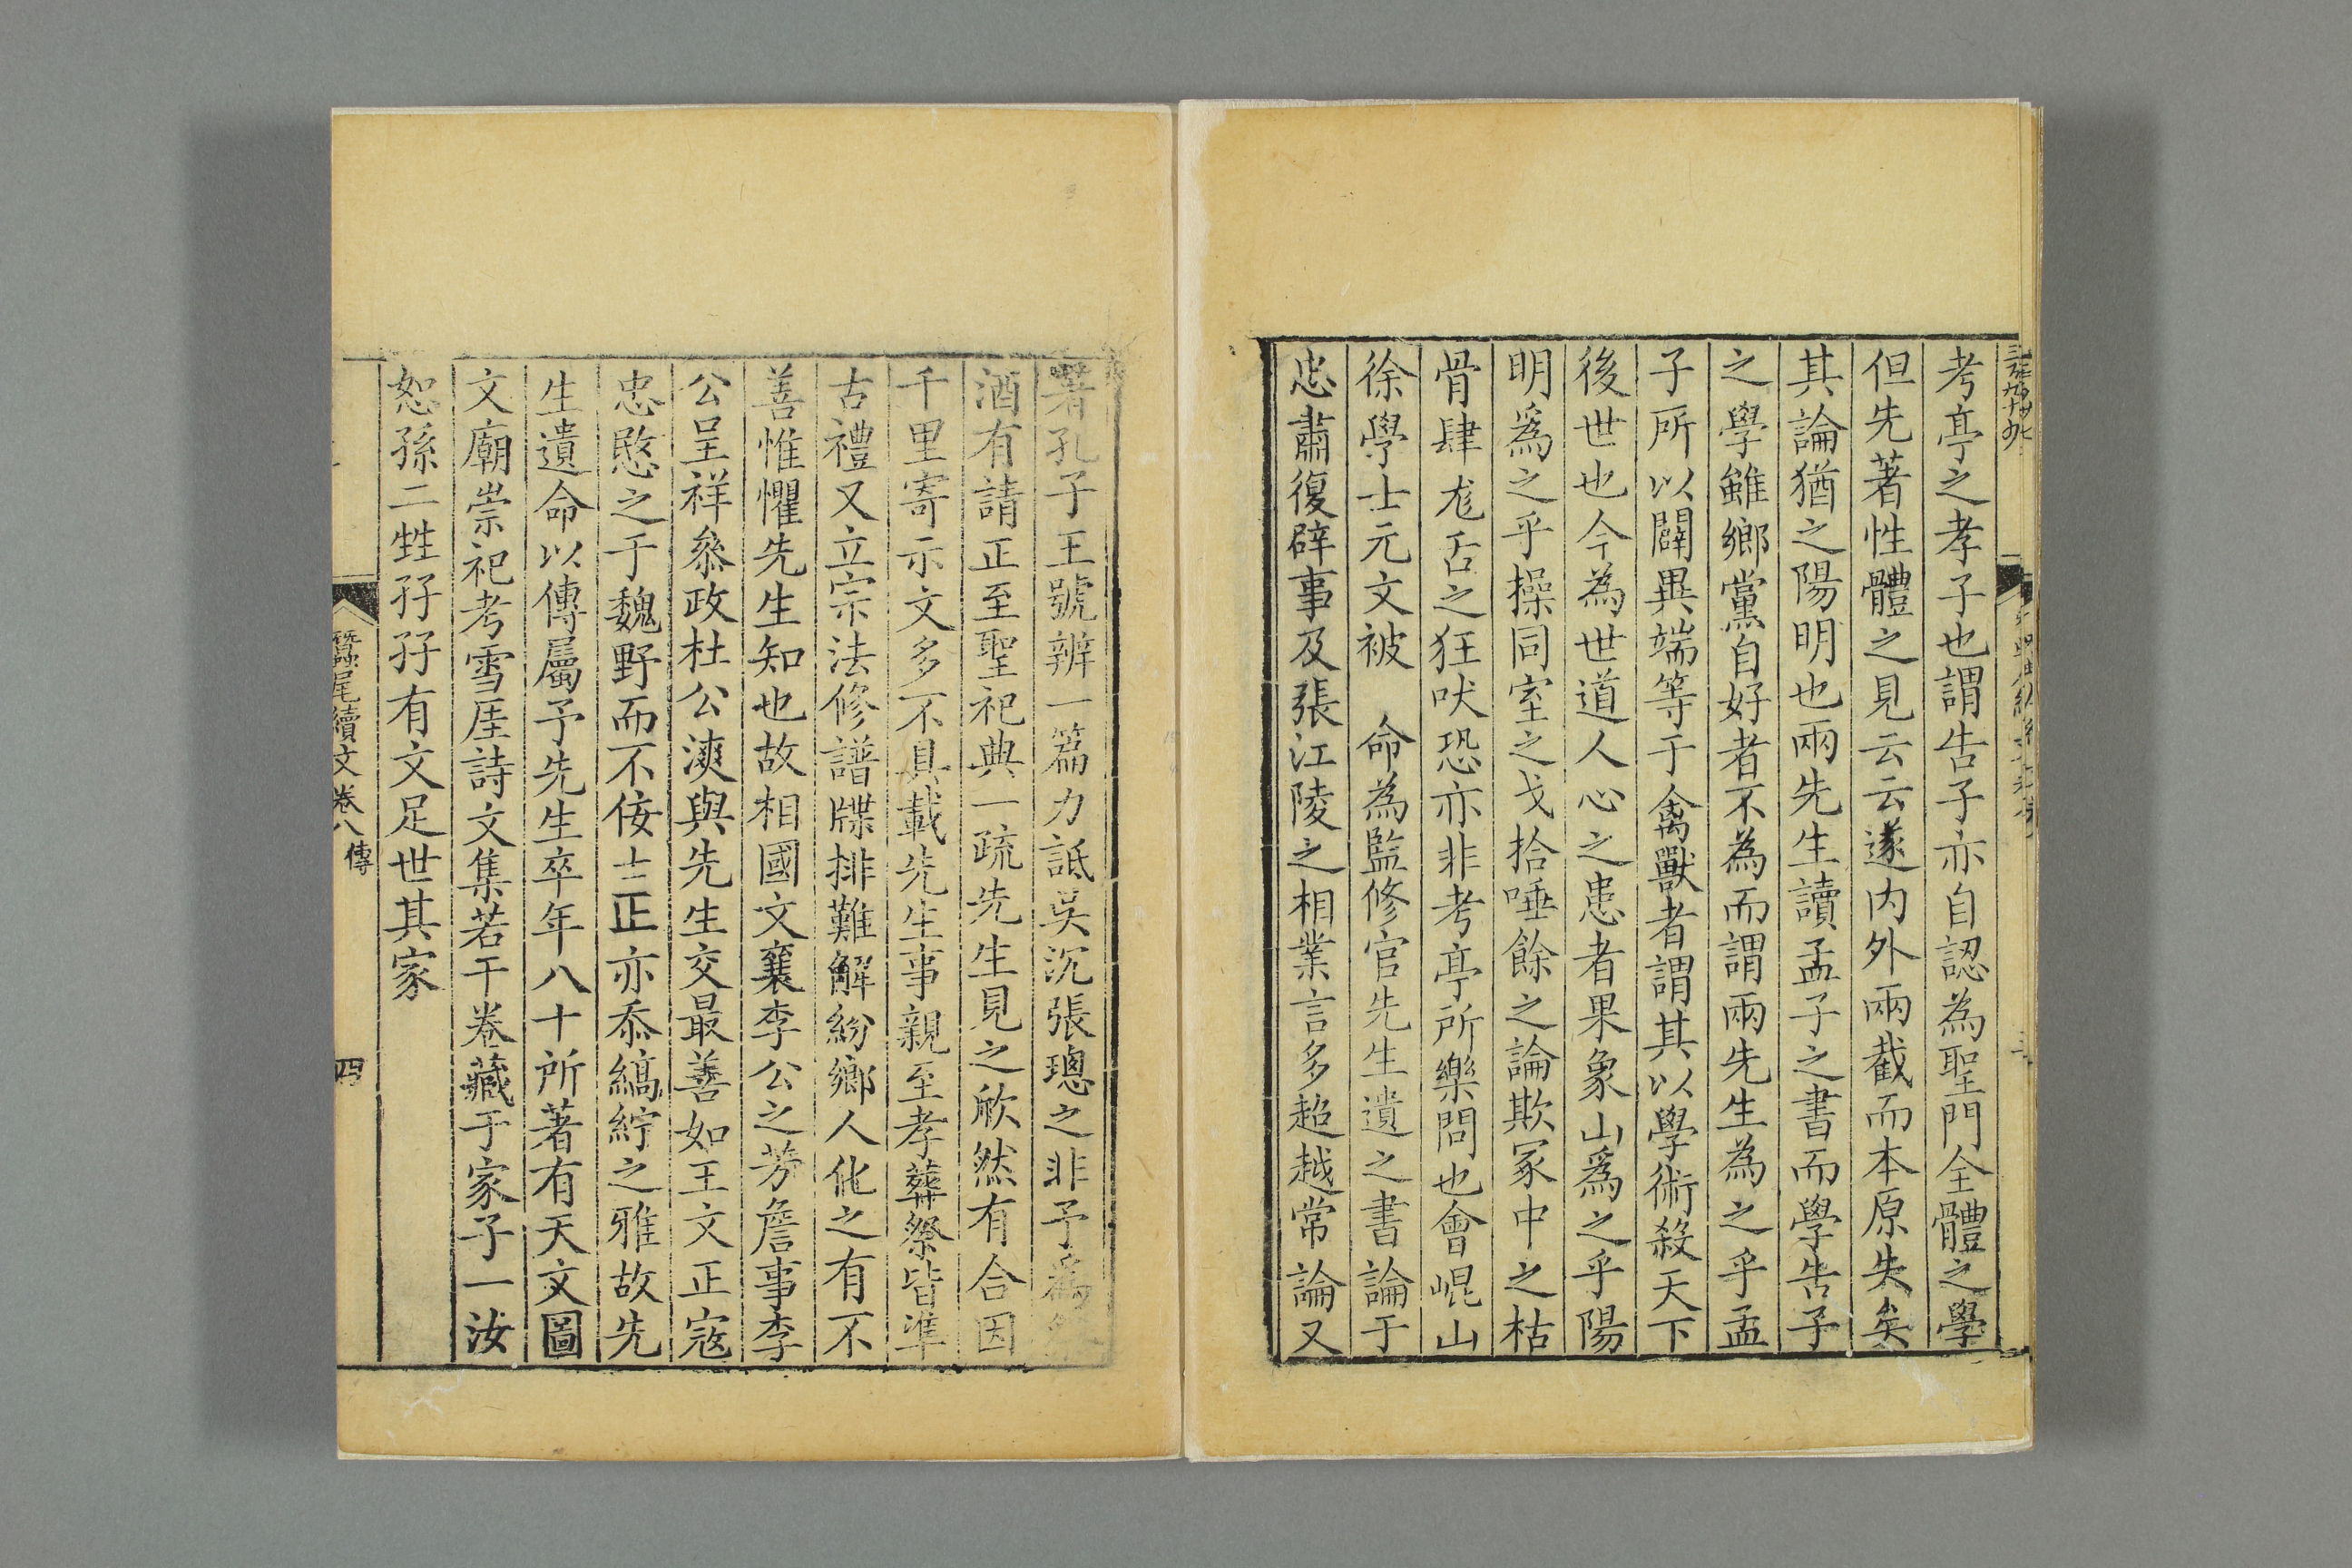 考亭之孝子也謂告子亦自認為聖門全體之學
但先著性體之見云云遂内外兩截而本原失矣
其論猶之陽明也兩先生讀孟子之書而學告子
之學雖鄉黨自好者不為而謂兩先生為之乎孟
子所以闢異端等于禽獸者謂其以學術殺天下
後世也今為世道人心之患者果象山爲之乎陽
明爲之乎操同室之戈拾唾餘之論欺冢中之枯
骨肆尨舌之狂吠恐亦非考亭所樂問也會崐山
徐學士元文被　命為監修官先生遺之書論于
忠肅復辟事及張江陵之相業言多超越常論又
著孔子王號辨一篇力詆吳沉張璁之非予爲祭
酒有請正至聖祀典一疏先生見之欣然有合因
千里寄示文多不具載先生事親至孝葬祭皆準
古禮又立宗法修譜牒排難解紛鄉人化之有不
善惟懼先生知也故相國文襄李公之芳詹事李
公呈祥叅政杜公漺與先生交最善如王文正寇
忠愍之于魏野而不佞士正亦忝縞紵之雅故先
生遺命以傳屬予先生卒年八十所著有天文圖
文廟崇祀考雪厓詩文集若干卷藏于家子一汝
恕孫二甡孖孖有文足世其家
蠶尾續文卷八 傳
四